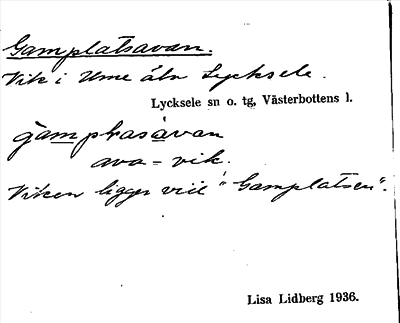 Gamplatsavan.
Vik i Ume älv Lycksele.
Lycksele sn o. tg, Västerbottens l.
gamplasavan
ava = vik.
Viken ligger vid "Gamplatsen".
Lisa Lidberg 1936.